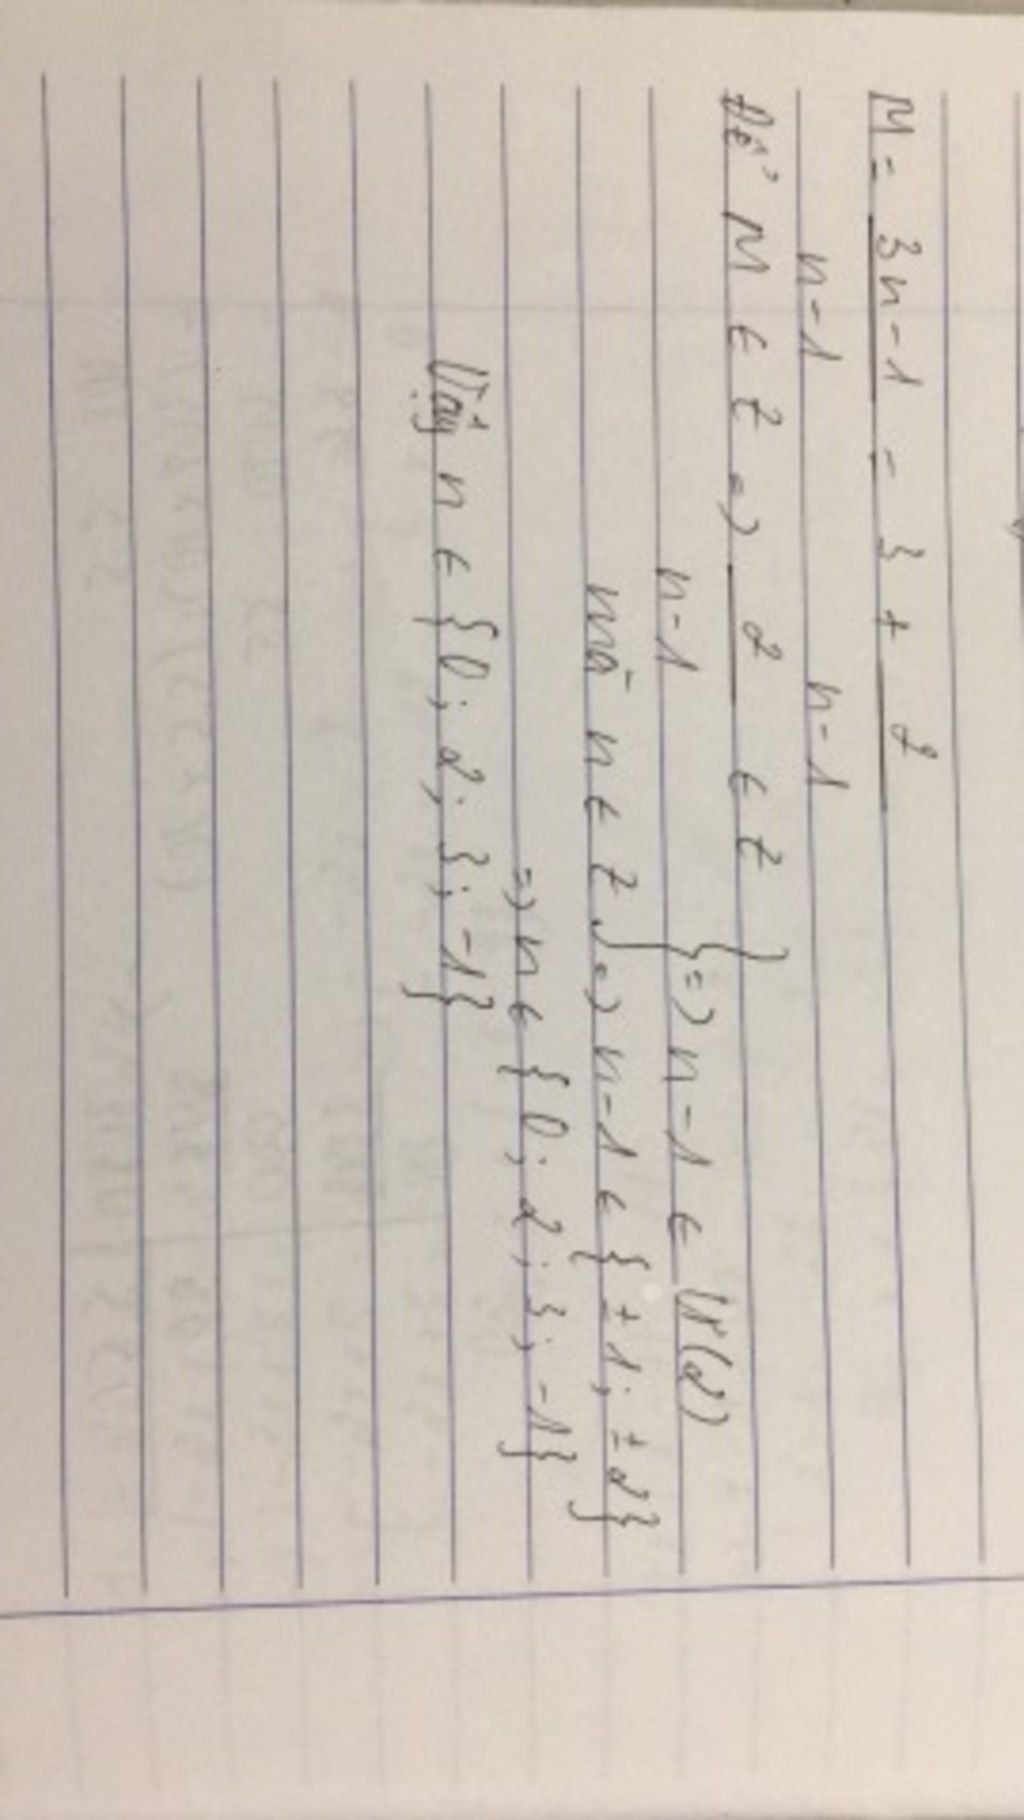 M = 3n-1 = 3 + 2
n-1 n-1
Để M ∈ Z => 2 ∈ Z
n-1 } => n-1 ∈ Ư(2)
mà n ∈ Z => n-1 ∈ {±1; ±2}
=> n ∈ {0; 2; 3; -1}
Vậy n ∈ {0; 2; 3; -1}